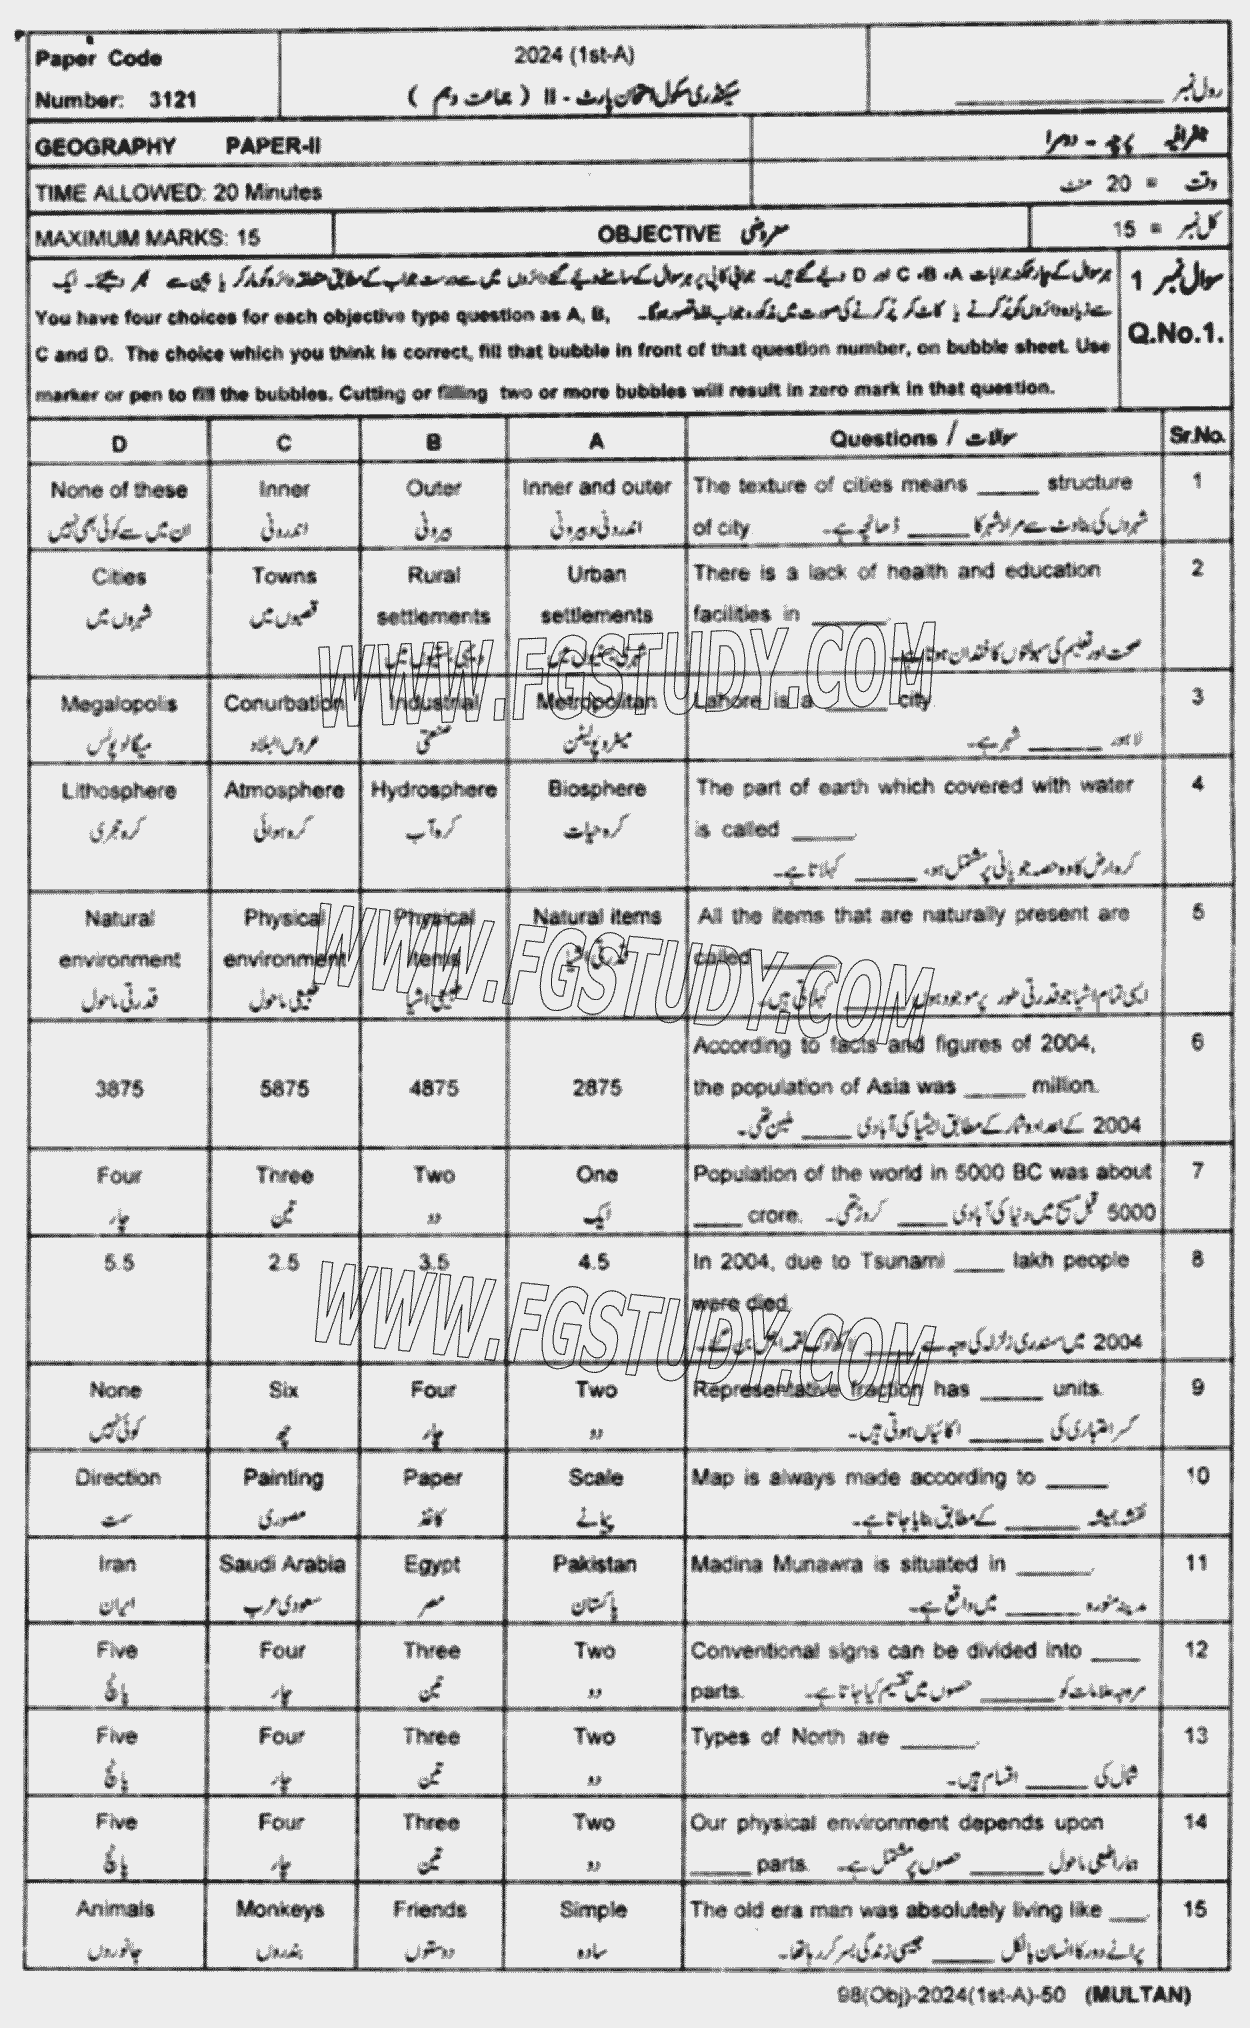 Paper Code
Number: 3121
2024 (1st-A)
سیکنڈری سکول امتحان پارٹ - II ( جماعت دہم )
رول نمبر ____________
GEOGRAPHY PAPER-II
جغرافیہ پرچہ - دوسرا
TIME ALLOWED: 20 Minutes
وقت = 20 منٹ
MAXIMUM MARKS: 15
OBJECTIVE معروضی
کل نمبر = 15
سوال نمبر 1
Q.No.1.
ہر سوال کے چار ممکنہ جوابات A، B، C اور D دیے گئے ہیں۔ جوابی کاپی پر ہر سوال کے سامنے دیے گئے دائروں میں سے درست جواب کے مطابق متعلقہ دائرہ کو مارکر یا پین سے بھر دیجئے۔ ایک
You have four choices for each objective type question as A, B, سے زیادہ دائروں کو پُر کرنے یا کاٹ کر پُر کرنے کی صورت میں مذکورہ جواب غلط تصور ہوگا۔
C and D. The choice which you think is correct, fill that bubble in front of that question number, on bubble sheet. Use
marker or pen to fill the bubbles. Cutting or filling two or more bubbles will result in zero mark in that question.
D C B A Questions / سوالات Sr.No.
None of these Inner Outer Inner and outer The texture of cities means _____ structure 1
ان میں سے کوئی بھی نہیں اندرونی بیرونی اندرونی و بیرونی of city شہروں کی بناوٹ سے مراد شہر کا _____ ڈھانچہ ہے۔
Cities Towns Rural Urban There is a lack of health and education 2
شہروں میں قصبوں میں settlements settlements facilities in ______.
دیہی بستیوں میں شہری بستیوں میں صحت اور تعلیم کی سہولتوں کا فقدان ہوتا ہے۔
Megalopolis Conurbation Industrial Metropolitan Lahore is a _____ city. 3
میگالوپولس عروس البلاد صنعتی میٹروپولیٹن لاہور ______ شہر ہے۔
Lithosphere Atmosphere Hydrosphere Biosphere The part of earth which covered with water 4
کرہ حجری کرہ ہوائی کرہ آب کرہ حیات is called _____.
کرہ ارض کا وہ حصہ جو پانی پر مشتمل ہو، _____ کہلاتا ہے۔
Natural Physical Physical Natural items All the items that are naturally present are 5
environment environment items قدرتی اشیا called ______.
قدرتی ماحول طبیعی ماحول طبیعی اشیا ایسی تمام اشیا جو قدرتی طور پر موجود ہوں ______ کہلاتی ہیں۔
According to facts and figures of 2004, 6
3875 5875 4875 2875 the population of Asia was _____ million.
2004 کے اعداد و شمار کے مطابق ایشیا کی آبادی ____ ملین تھی۔
Four Three Two One Population of the world in 5000 BC was about 7
چار تین دو ایک ____ crore. 5000 قبل مسیح میں دنیا کی آبادی ____ کروڑ تھی۔
5.5 2.5 3.5 4.5 In 2004, due to Tsunami ____ lakh people 8
were died.
2004 میں سمندری زلزلہ کی وجہ سے ____ لاکھ لوگ لقمہ اجل بن گئے۔
None Six Four Two Representative fraction has _____ units. 9
کوئی نہیں چھ چار دو کسر اعتباری کی ______ اکائیاں ہوتی ہیں۔
Direction Painting Paper Scale Map is always made according to _____ 10
سمت مصوری کاغذ پیمانے نقشہ ہمیشہ ______ کے مطابق بنایا جاتا ہے۔
Iran Saudi Arabia Egypt Pakistan Madina Munawra is situated in ______. 11
ایران سعودی عرب مصر پاکستان مدینہ منورہ ______ میں واقع ہے۔
Five Four Three Two Conventional signs can be divided into ____ 12
پانچ چار تین دو parts. مروجہ علامات کو ______ حصوں میں تقسیم کیا جاتا ہے۔
Five Four Three Two Types of North are ______. 13
پانچ چار تین دو شمال کی _____ اقسام ہیں۔
Five Four Three Two Our physical environment depends upon 14
پانچ چار تین دو _____ parts. ہمارا طبعی ماحول ______ حصوں پر مشتمل ہے۔
Animals Monkeys Friends Simple The old era man was absolutely living like ___. 15
جانوروں بندروں دوستوں سادہ پرانے دور کا انسان بالکل _____ جیسی زندگی بسر کر رہا تھا۔
98(Obj)-2024(1st-A)-50 (MULTAN)
WWW.FGSTUDY.COM
WWW.FGSTUDY.COM
WWW.FGSTUDY.COM